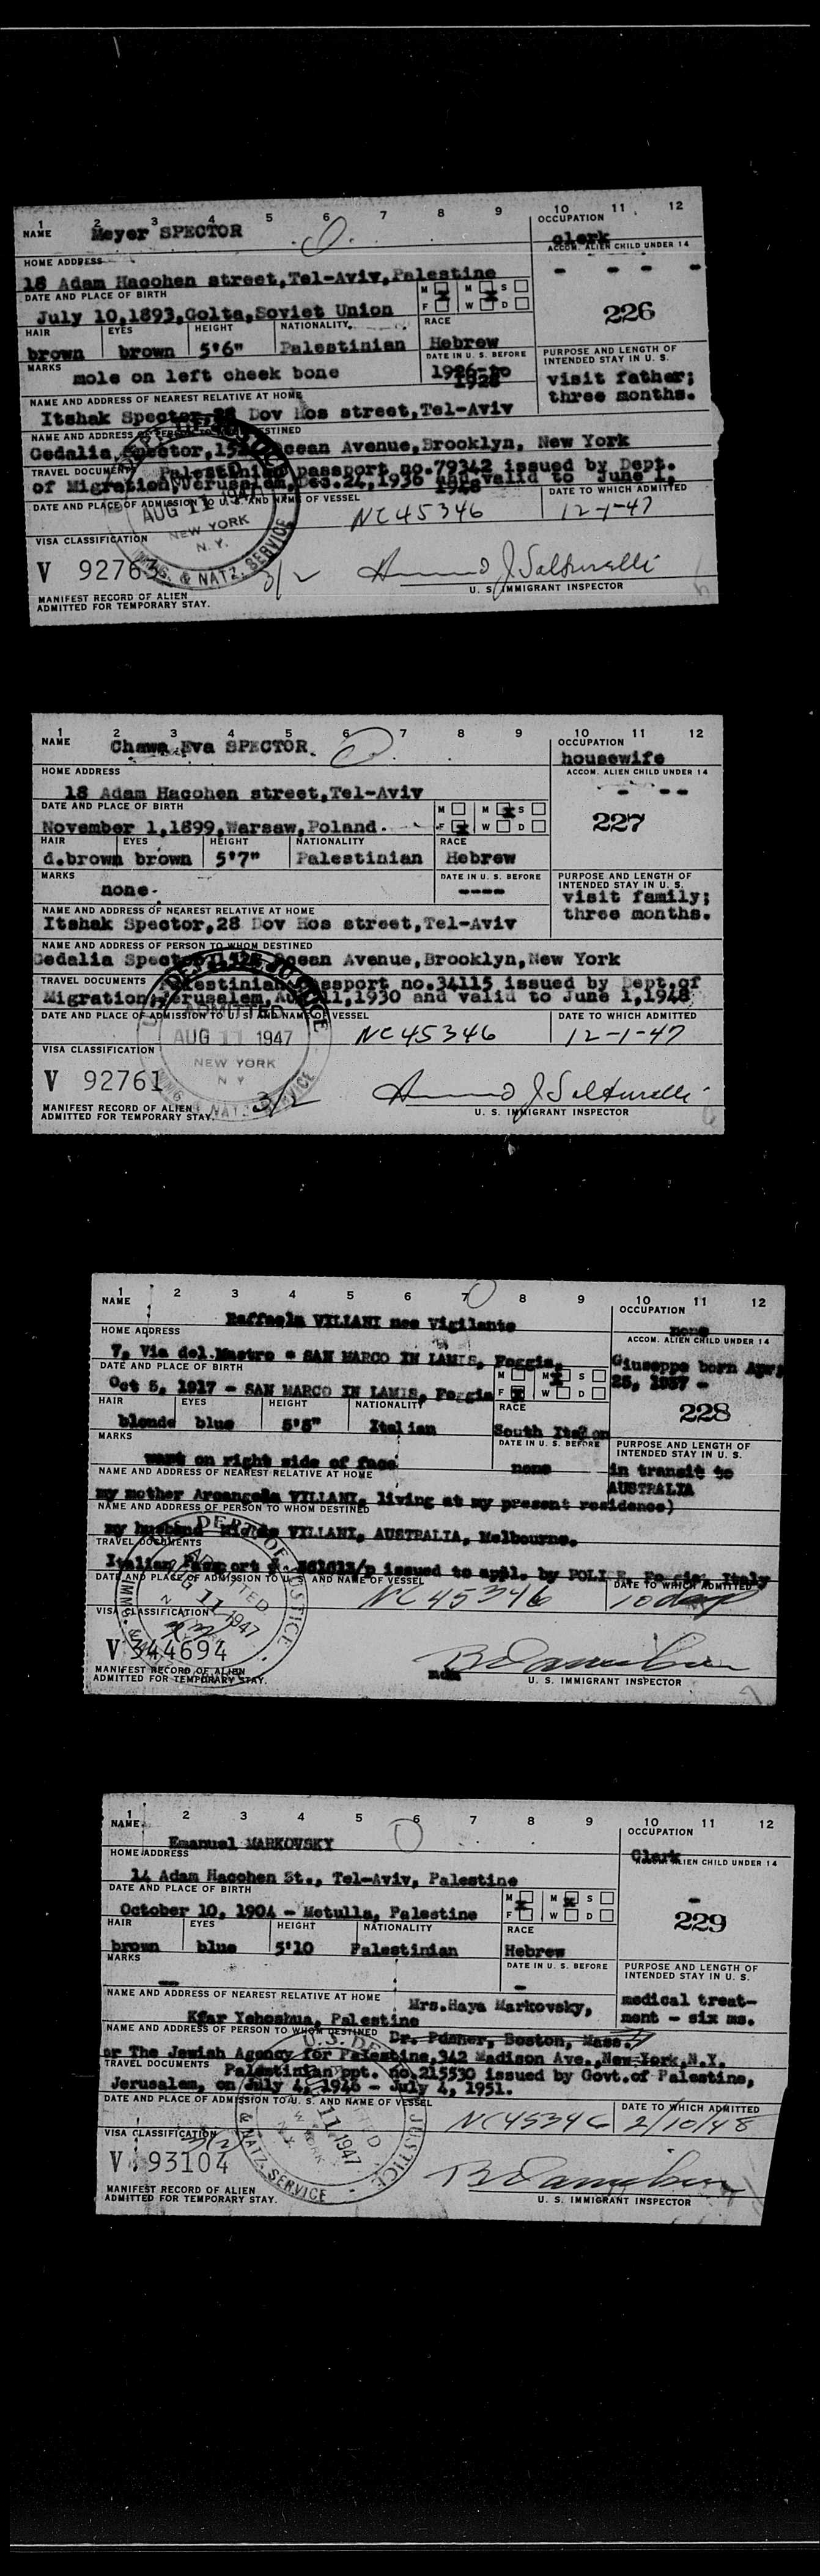 1 2 3 4 5 6 7 8 9 10 11 12
NAME Meyer SPECTOR
OCCUPATION
clerk
HOME ADDRESS
ACCOM. ALIEN CHILD UNDER 14
18 Adam Hacohen street,Tel-Aviv,Palestine
- - - -
DATE AND PLACE OF BIRTH
M M S
July 10,1893,Golta,Soviet Union
F W D
226
HAIR EYES HEIGHT NATIONALITY RACE
brown brown 5'6" Palestinian Hebrew
MARKS
DATE IN U. S. BEFORE
PURPOSE AND LENGTH OF
INTENDED STAY IN U. S.
mole on left cheek bone
1928
visit father;
three months.
NAME AND ADDRESS OF NEAREST RELATIVE AT HOME
Itshak Spector,28 Dov Hos street,Tel-Aviv
NAME AND ADDRESS OF PERSON TO WHOM DESTINED
Gedalia Spector, Ocean Avenue,Brooklyn, New York
TRAVEL DOCUMENTS Palestinian passport no.79342 issued by Dept.
of Migration,Jerusalem,Dec.24,1936 and valid to June 1,
1948
DATE AND PLACE OF ADMISSION TO U. S. AND NAME OF VESSEL
DATE TO WHICH ADMITTED
AUG 11 1947
NC45346
12-1-47
NEW YORK
N. Y.
VISA CLASSIFICATION
V 92763
IMMIG. & NATZ. SERVICE
3/2
U. S. IMMIGRANT INSPECTOR
MANIFEST RECORD OF ALIEN
ADMITTED FOR TEMPORARY STAY.
1 2 3 4 5 6 7 8 9 10 11 12
NAME Chawa Eva SPECTOR.
OCCUPATION
housewife
HOME ADDRESS
ACCOM. ALIEN CHILD UNDER 14
18 Adam Hacohen street,Tel-Aviv
- - -
DATE AND PLACE OF BIRTH
M M S
November 1,1899,Warsaw,Poland.
F W D
227
HAIR EYES HEIGHT NATIONALITY RACE
d.brown brown 5'7" Palestinian Hebrew
MARKS
DATE IN U. S. BEFORE
PURPOSE AND LENGTH OF
INTENDED STAY IN U. S.
none.
----
visit family;
three months.
NAME AND ADDRESS OF NEAREST RELATIVE AT HOME
Itshak Spector,28 Dov Hos street,Tel-Aviv
NAME AND ADDRESS OF PERSON TO WHOM DESTINED
Gedalia Spector, Ocean Avenue,Brooklyn,New York
TRAVEL DOCUMENTS Palestinian passport no.34115 issued by Dept.of
Migration,Jerusalem,Aug.11,1930 and valid to June 1,1948
DATE AND PLACE OF ADMISSION TO U. S. AND NAME OF VESSEL
DATE TO WHICH ADMITTED
ADMITTED
AUG 11 1947
NC45346
12-1-47
VISA CLASSIFICATION
NEW YORK
N Y
V 92761
3/2
MANIFEST RECORD OF ALIEN
ADMITTED FOR TEMPORARY STAY.
U. S. IMMIGRANT INSPECTOR
1 2 3 4 5 6 7 8 9 10 11 12
NAME
OCCUPATION
Raffaela VILLANI nee Vigilante
none
HOME ADDRESS
ACCOM. ALIEN CHILD UNDER 14
7, Via del Mastro - SAN MARCO IN LAMIS, Foggia,
Giuseppe born Apr.
DATE AND PLACE OF BIRTH
M M S
25, 1937 -
Oct 5, 1917 - SAN MARCO IN LAMIS, Foggia
F W D
228
HAIR EYES HEIGHT NATIONALITY RACE
blonde blue 5'5" Italian South Italian
MARKS
DATE IN U. S. BEFORE
PURPOSE AND LENGTH OF
INTENDED STAY IN U. S.
wart on right side of face
none
in transit to
AUSTRALIA
NAME AND ADDRESS OF NEAREST RELATIVE AT HOME
my mother Arcangela VILLANI, living at my present residence)
NAME AND ADDRESS OF PERSON TO WHOM DESTINED
my husband VILLANI, AUSTRALIA, Melbourne.
TRAVEL DOCUMENTS
Italian Passport issued to appl. by POLICE, Foggia, Italy
DATE AND PLACE OF ADMISSION TO U. S. AND NAME OF VESSEL
DATE TO WHICH ADMITTED
NC 45346
10 days
VISA CLASSIFICATION
V 344694
MANIFEST RECORD OF ALIEN
ADMITTED FOR TEMPORARY STAY.
U. S. IMMIGRANT INSPECTOR
1 2 3 4 5 6 7 8 9 10 11 12
NAME
OCCUPATION
Emanuel MARKOVSKY
Clerk
HOME ADDRESS
ACCOM. ALIEN CHILD UNDER 14
14 Adam Hacohen St., Tel-Aviv, Palestine
-
DATE AND PLACE OF BIRTH
M M S
October 10, 1904 - Metulla, Palestine
F W D
229
HAIR EYES HEIGHT NATIONALITY RACE
brown blue 5'10 Palestinian Hebrew
MARKS
DATE IN U. S. BEFORE
PURPOSE AND LENGTH OF
INTENDED STAY IN U. S.
-
-
medical treat-
ment - six ms.
NAME AND ADDRESS OF NEAREST RELATIVE AT HOME
Mrs.Haya Markovsky,
Kfar Yehoshua, Palestine
NAME AND ADDRESS OF PERSON TO WHOM DESTINED
Dr. Boston, Mass.
or The Jewish Agency for Palestine,342 Madison Ave.,New York,N.Y.
TRAVEL DOCUMENTS Palestinian ppt. no.215530 issued by Govt.of Palestine,
Jerusalem, on July 4, 1946 - July 4, 1951.
DATE AND PLACE OF ADMISSION TO U. S. AND NAME OF VESSEL
DATE TO WHICH ADMITTED
NC45346
2/10/48
VISA CLASSIFICATION
V 93104
MANIFEST RECORD OF ALIEN
ADMITTED FOR TEMPORARY STAY.
U. S. IMMIGRANT INSPECTOR